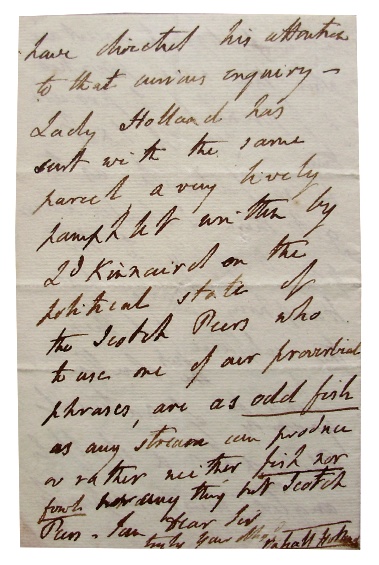 have directed his attention
to that curious enquiry –
Lady Holland has
sent with the same
parcel, a very lively
pamphlet written by
Ld Kinnaird on the
political state of
the Scotch Peers who
to use one of our proverbial
phrases, are as odd fish
as any stream can produce
or rather neither fish nor
fowl nor any thing but Scotch
Peers – I am Dear Sir
truly your